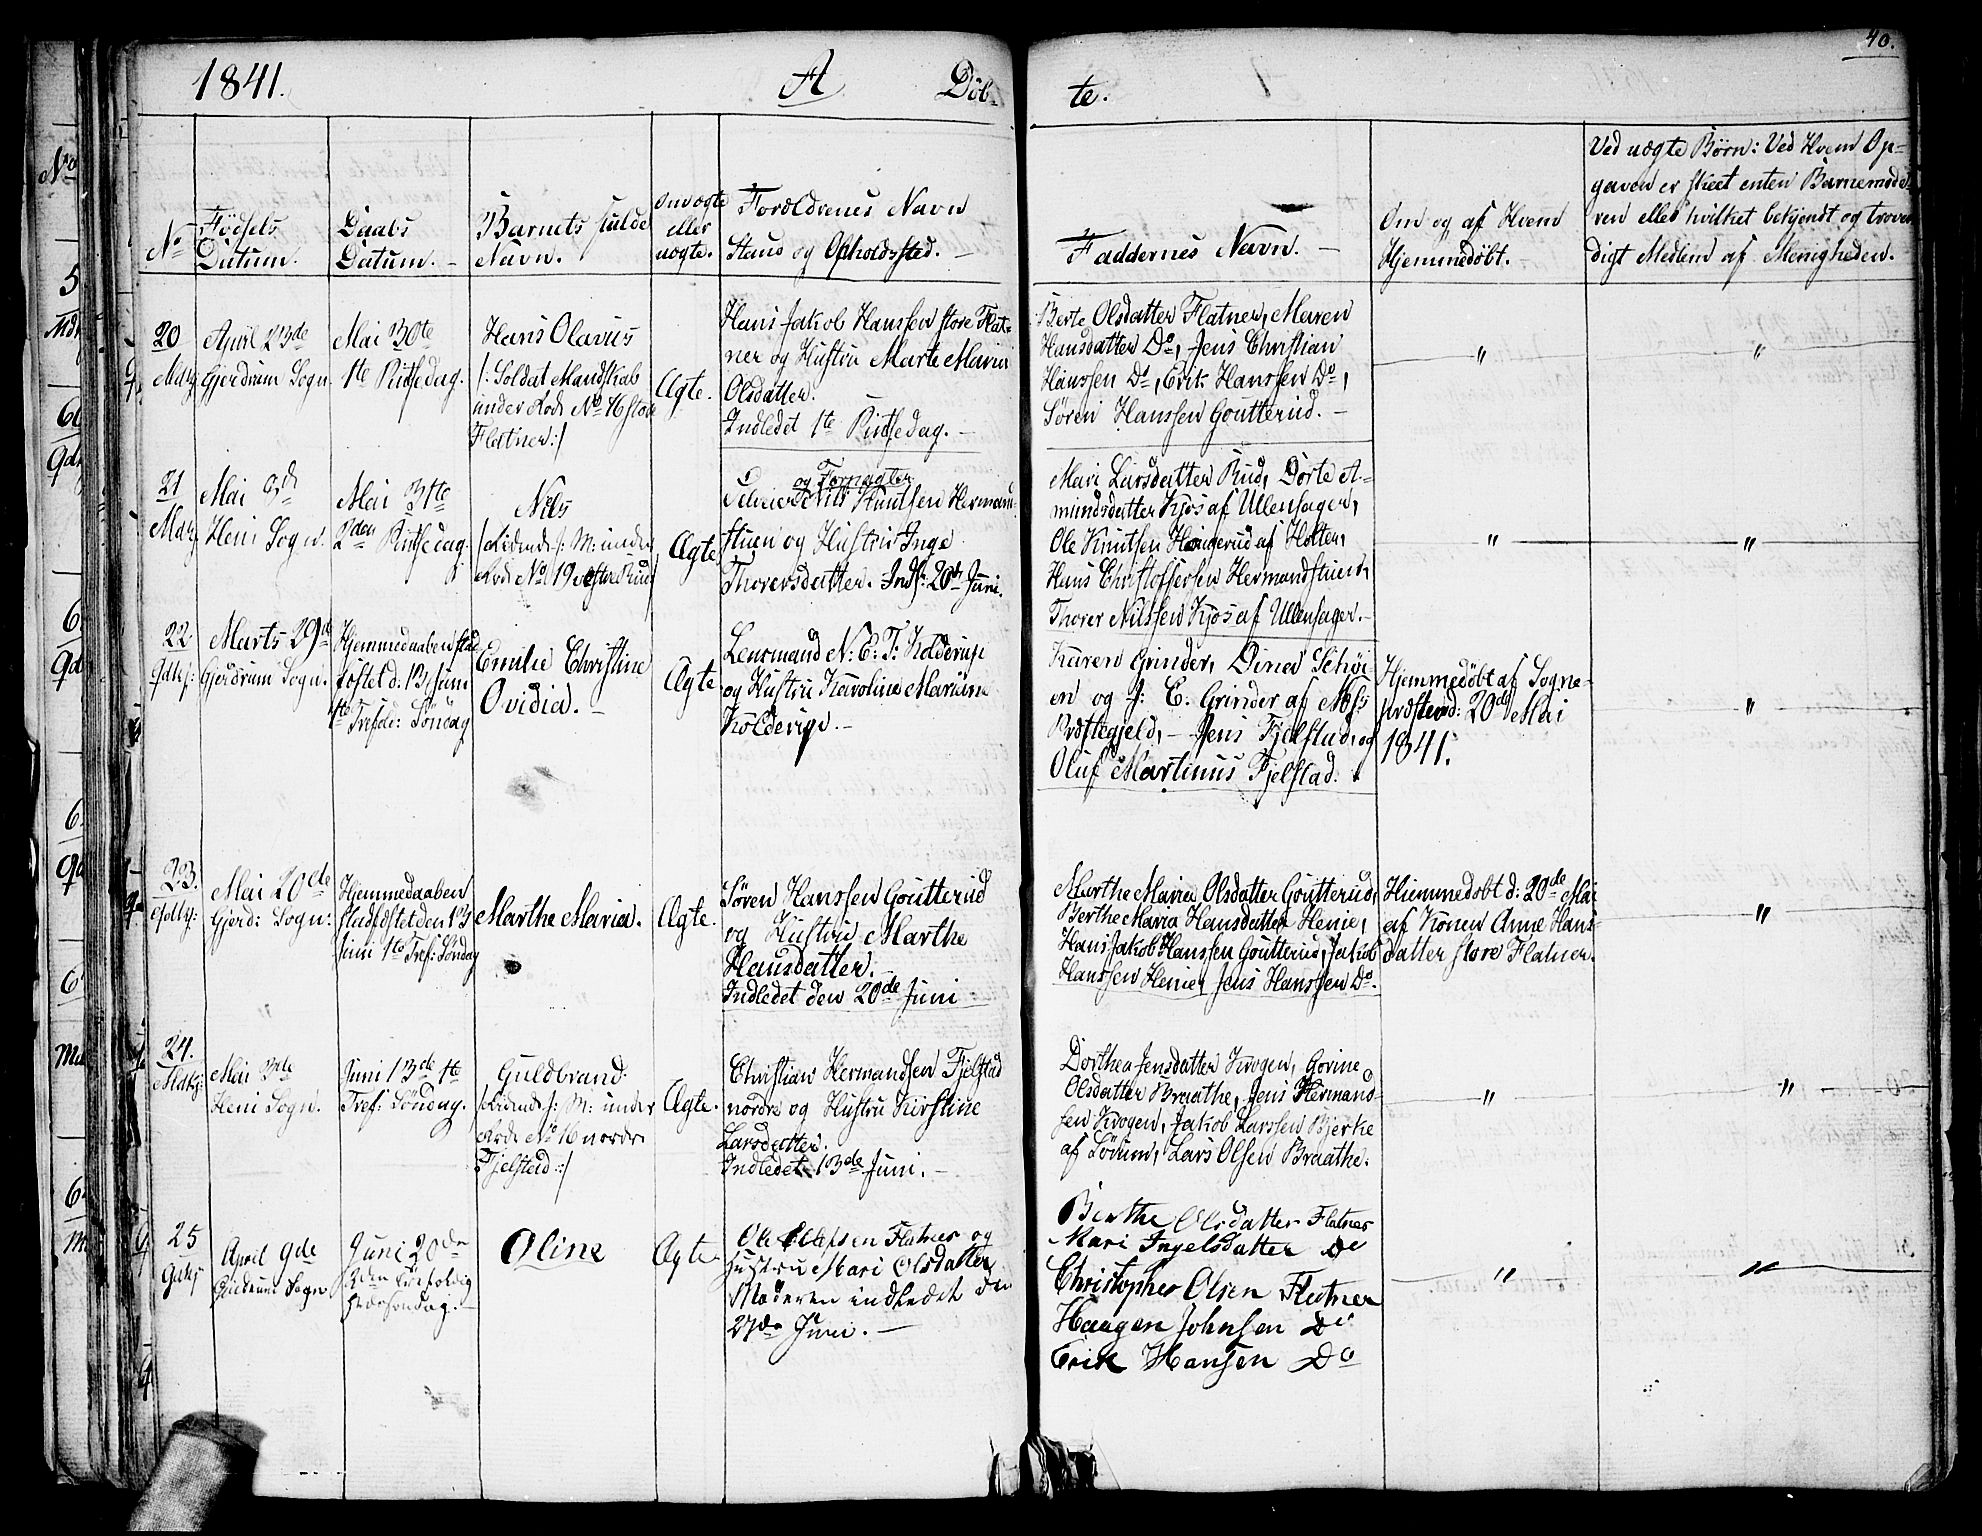 40.
1841. A Döb-
te.
No
Födsels
Datum.
Daabs
Datum.
Barnets fulde
Navn.
Om ægte
eller
uægte.
Forældrenes Navn
Stand og Opholdssted.
Faddernes Navn.
Om og af Hvem
Hjemmedöbt.
Ved uægte Børn: Ved Hvem Op-
gaven er skeet enten Barnemode-
ren eller hvilket bekjendt og trover-
digt Medlem af Menigheden.
20
April 23de
Gjerdrum Sogn
Mai 30te
1te Pintsedag.
Hans Olavus
/: Soldat Mandskab
under Rode No 16 store
Flatner :/
Ægte.
Hans Jakob Hanssen store Flat-
ner og Hustru Marte Maria
Olsdatter.
Indledet 1te Pintsedag.
Berte Olsdatter Flatner, Maren
Hansdatter Do, Jens Christian
Hanssen Do, Erik Hanssen Do,
Sören Hanssen Goutterud.
"
"
21
Mai
Heni Sogn.
Mai 31te
2den Pintsedag
Nils
under
Rode No 19 Rud
Ægte
og Forpagter
Nils Knutsen Hermand-
stuen og Hustru Inge
Thorersdatter. Indl: 20de Juni.
Mari Larsdatter Rud, Dorte A-
mundsdatter Kjos af Ullensager,
Ole Knutsen af Holter,
Hans Christoffersen Hermandstuen,
Thorer Nilssen Kjos af Ullensager.
"
"
22
Marts 29de
Gjerdrum Sogn.
Hjemmedaaben stad-
fæstet d: 13 Juni
1te Tref: Söndag
Emilie Christine
Ovidia.
Ægte
Lensmand N: E: T: Kolderup
og Hustru Karoline Mariane
Kolderup.
Karen Grinder, Dina Schöi-
en og J: C. Grinder af Næs
Præstegjeld, Jens Fjelstad, og
Oluf Martinus Fjelstad.
Hjemmedöbt af Sogne-
præsten d: 20de Mai
1841.
"
23.
Mai 20de
Gjerd: Sogn:
Hjemmedaaben
stadfæstet den 13
Juni 1te Tref: Söndag
Marthe Maria.
Ægte.
Sören Hanssen Goutterud
og Hustru Marthe
Hansdatter.
Indledet den 20de Juni
Marthe Maria Olsdatter Goutterud,
Berthe Maria Hansdatter Henie,
Hans Jakob Hanssen Goutterud, Jakob
Hanssen Henie, Jens Hanssen Do.
Hiemmedobt d: 20de Mai
af Konen Anne Hans-
datter store Flatner.
"
24.
Mai 3de
Heni Sogn.
Juni 13de 1te
Tref: Söndag.
Guldbrand.
M: under
Rode No 16 nordre
Fjelstad :/
Ægte.
Christian Hermandsen Fjelstad
nordre og Hustru Kirstine
Larsdatter.
Indledet 13de Juni.
Dorthea Jensdatter Krogen, Gorine
Olsdatter Braathe, Jens Hermand-
sen Krogen, Jakob Larssen Bjerke
af Sörum, Lars Olsen Braathe.
"
"
25
April 9de
Gierdrum Sogn
Juni 20de
Oline
Ægte
Ole Olefsen Flatner og
Hustru Mari Olsdatter
Moderen indledet den
27de Juni.
Berthe Olsdatter Flatner
Mari Ingelsdatter Do
Christopher Olsen Flatner
Haagen Johnsen Do
Erik Hansen Do
"
"